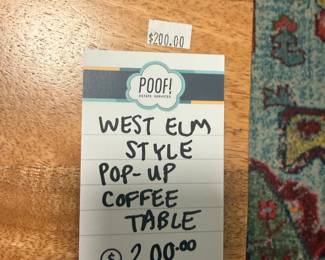 $200.00
POOF!
ESTATE SERVICES
WEST ELM
STYLE
POP-UP
COFFEE
TABLE
$ 200.00